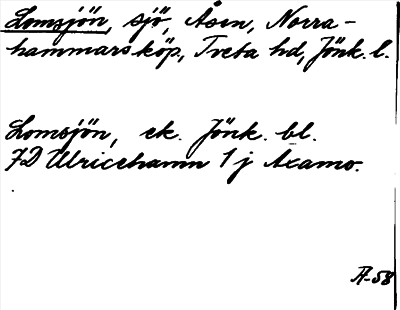 Lomsjön, sjö, Åsen, Norra-
hammars köp, Tveta hd, Jönk. l.
Lomsjön, ek. Jönk. bl.
7D Ulricehamn 1 j Axamo.
A-58